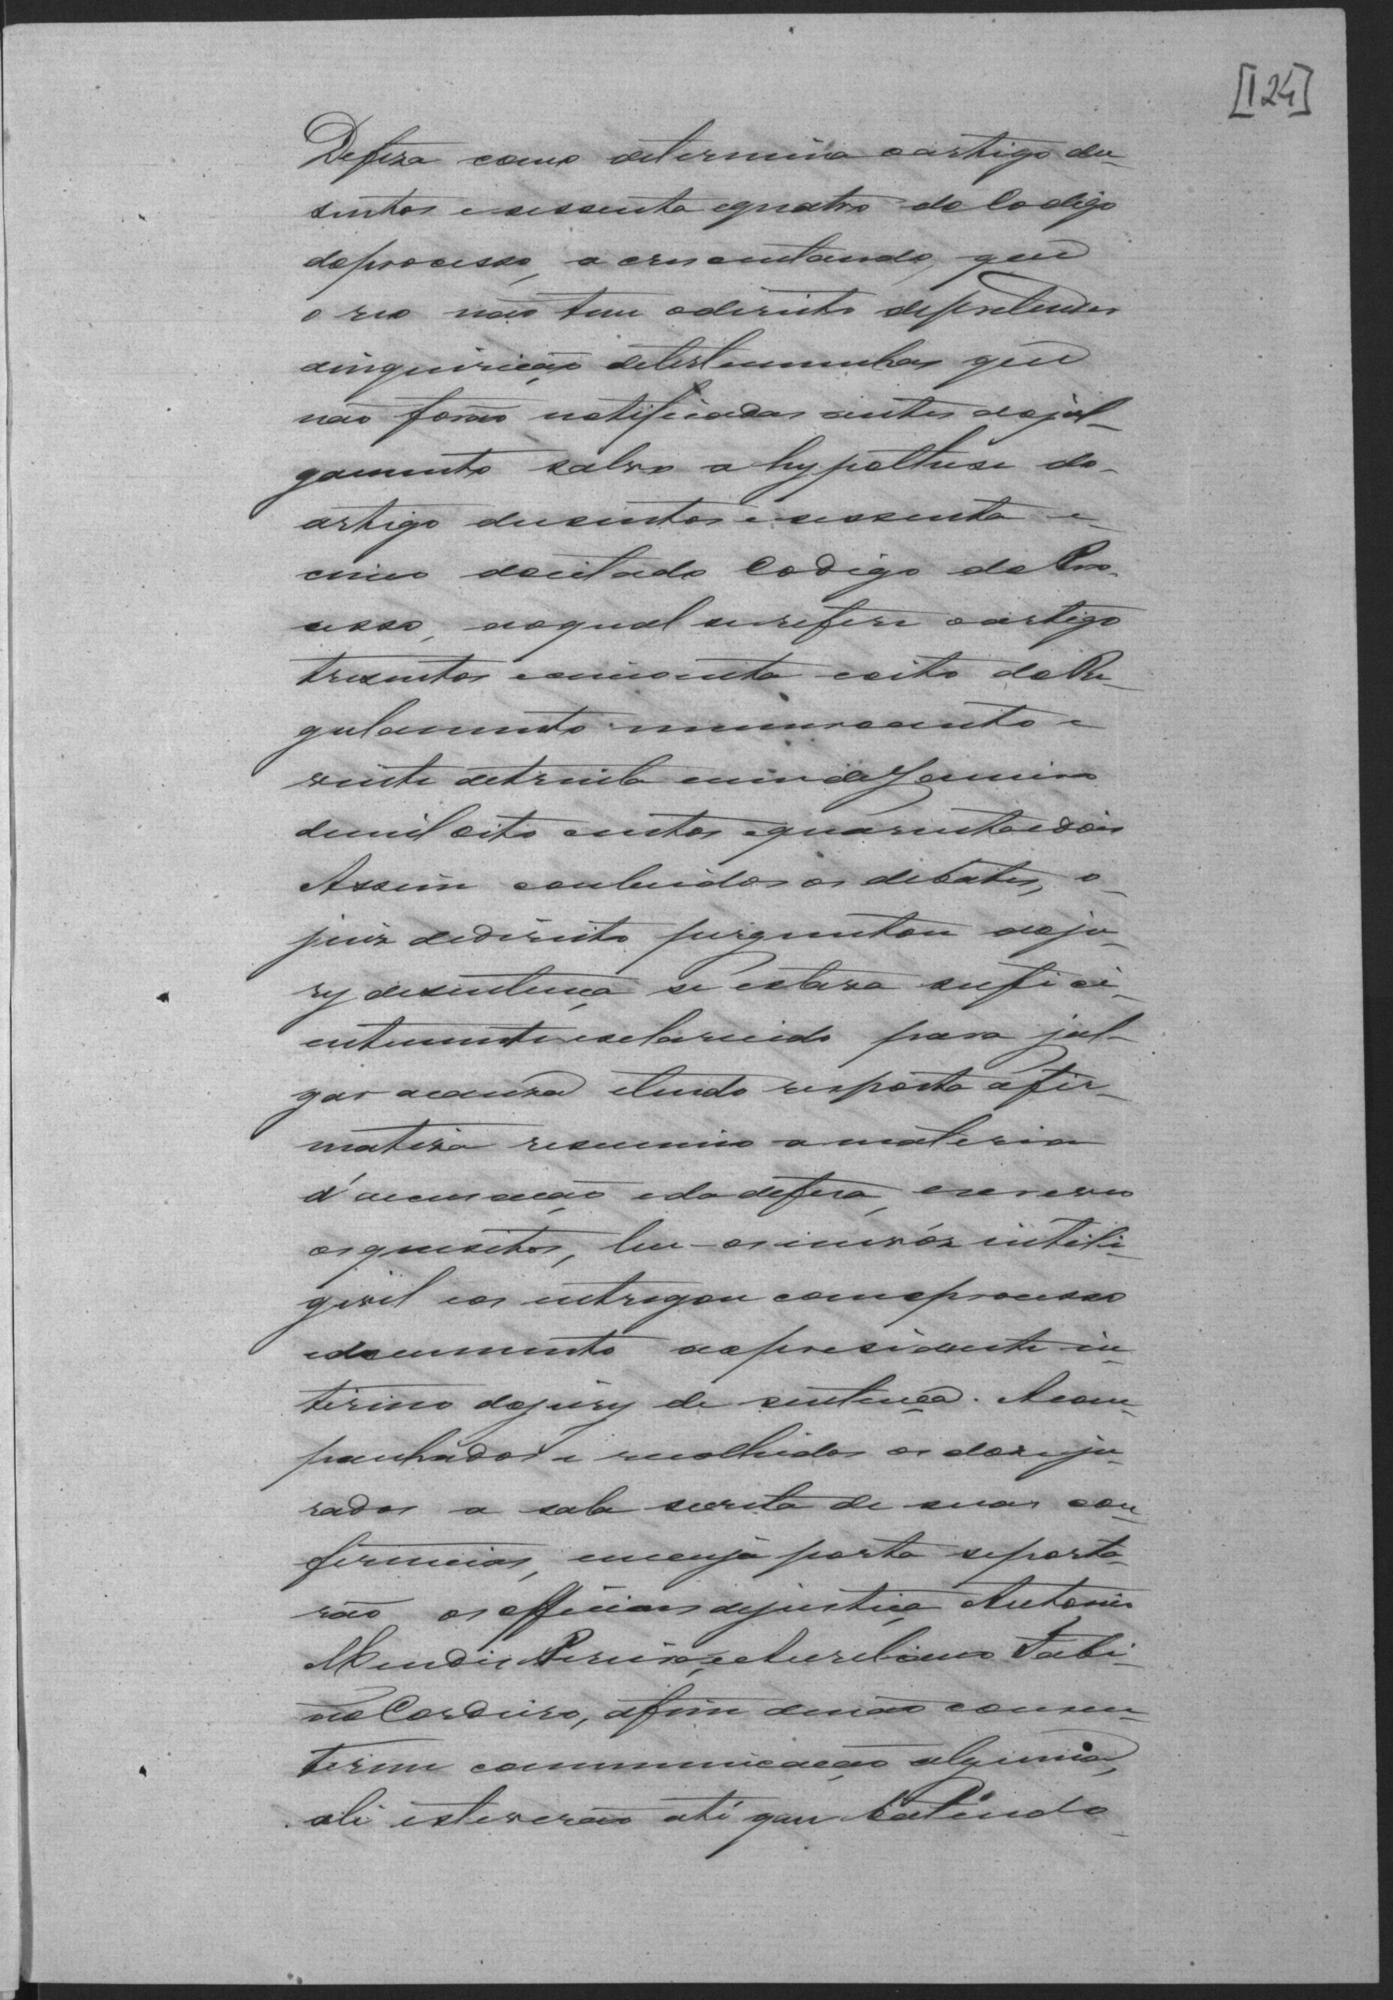 [124]
Defeza como determina o artigo du-
sentos e sessenta e quatro do Codigo
do processo, acrescentando, que
o reo não tem o direito de pretender
a inquirição de testemunhas que
não forão notificadas antes do jul-
gamento salvo a hypothese do
artigo dusentos e sessenta e
cinco do citado Codigo do Pro-
cesso, ao qual se refere o artigo
tresentos e cincoenta e oito do Re-
gulamento numero cento e
vinte de trinta e um de Janeiro
de mil oito centos e quarenta e dois
Assim concluidos os debates, o
juiz de direito perguntou ao ju-
ry de sentença se estava sufici-
entemente esclarecido para jul-
gar a causa e tendo resposta afir-
mativa resumio a materia
d'accusação e da defesa, escreveu
os quesitos, leu-os em voz inteli-
givel e os entregou com o processo
e documento ao presidente in-
terino do jury de sentença. Acom-
panhados e recolhidos os doze ju-
rados a sala secreta de suas con-
ferencias, em cuja porta se posta-
rão os officiaes de justiça Antonio
Mendes Pereira, e Aureliano Sabi-
no Cordeiro, afim de não consen-
tirem communicação alguma,
ali estiverão até que batendo